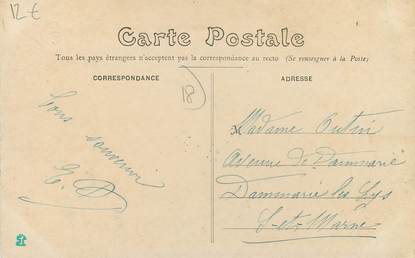 12 €
Carte Postale
Tous les pays étrangers n'acceptent pas la correspondance au recto (Se renseigner à la Poste)
CORRESPONDANCE
ADRESSE
18
souvenir
Madame
Avenue de Dammarie
Dammarie les Lys
S-et-Marne